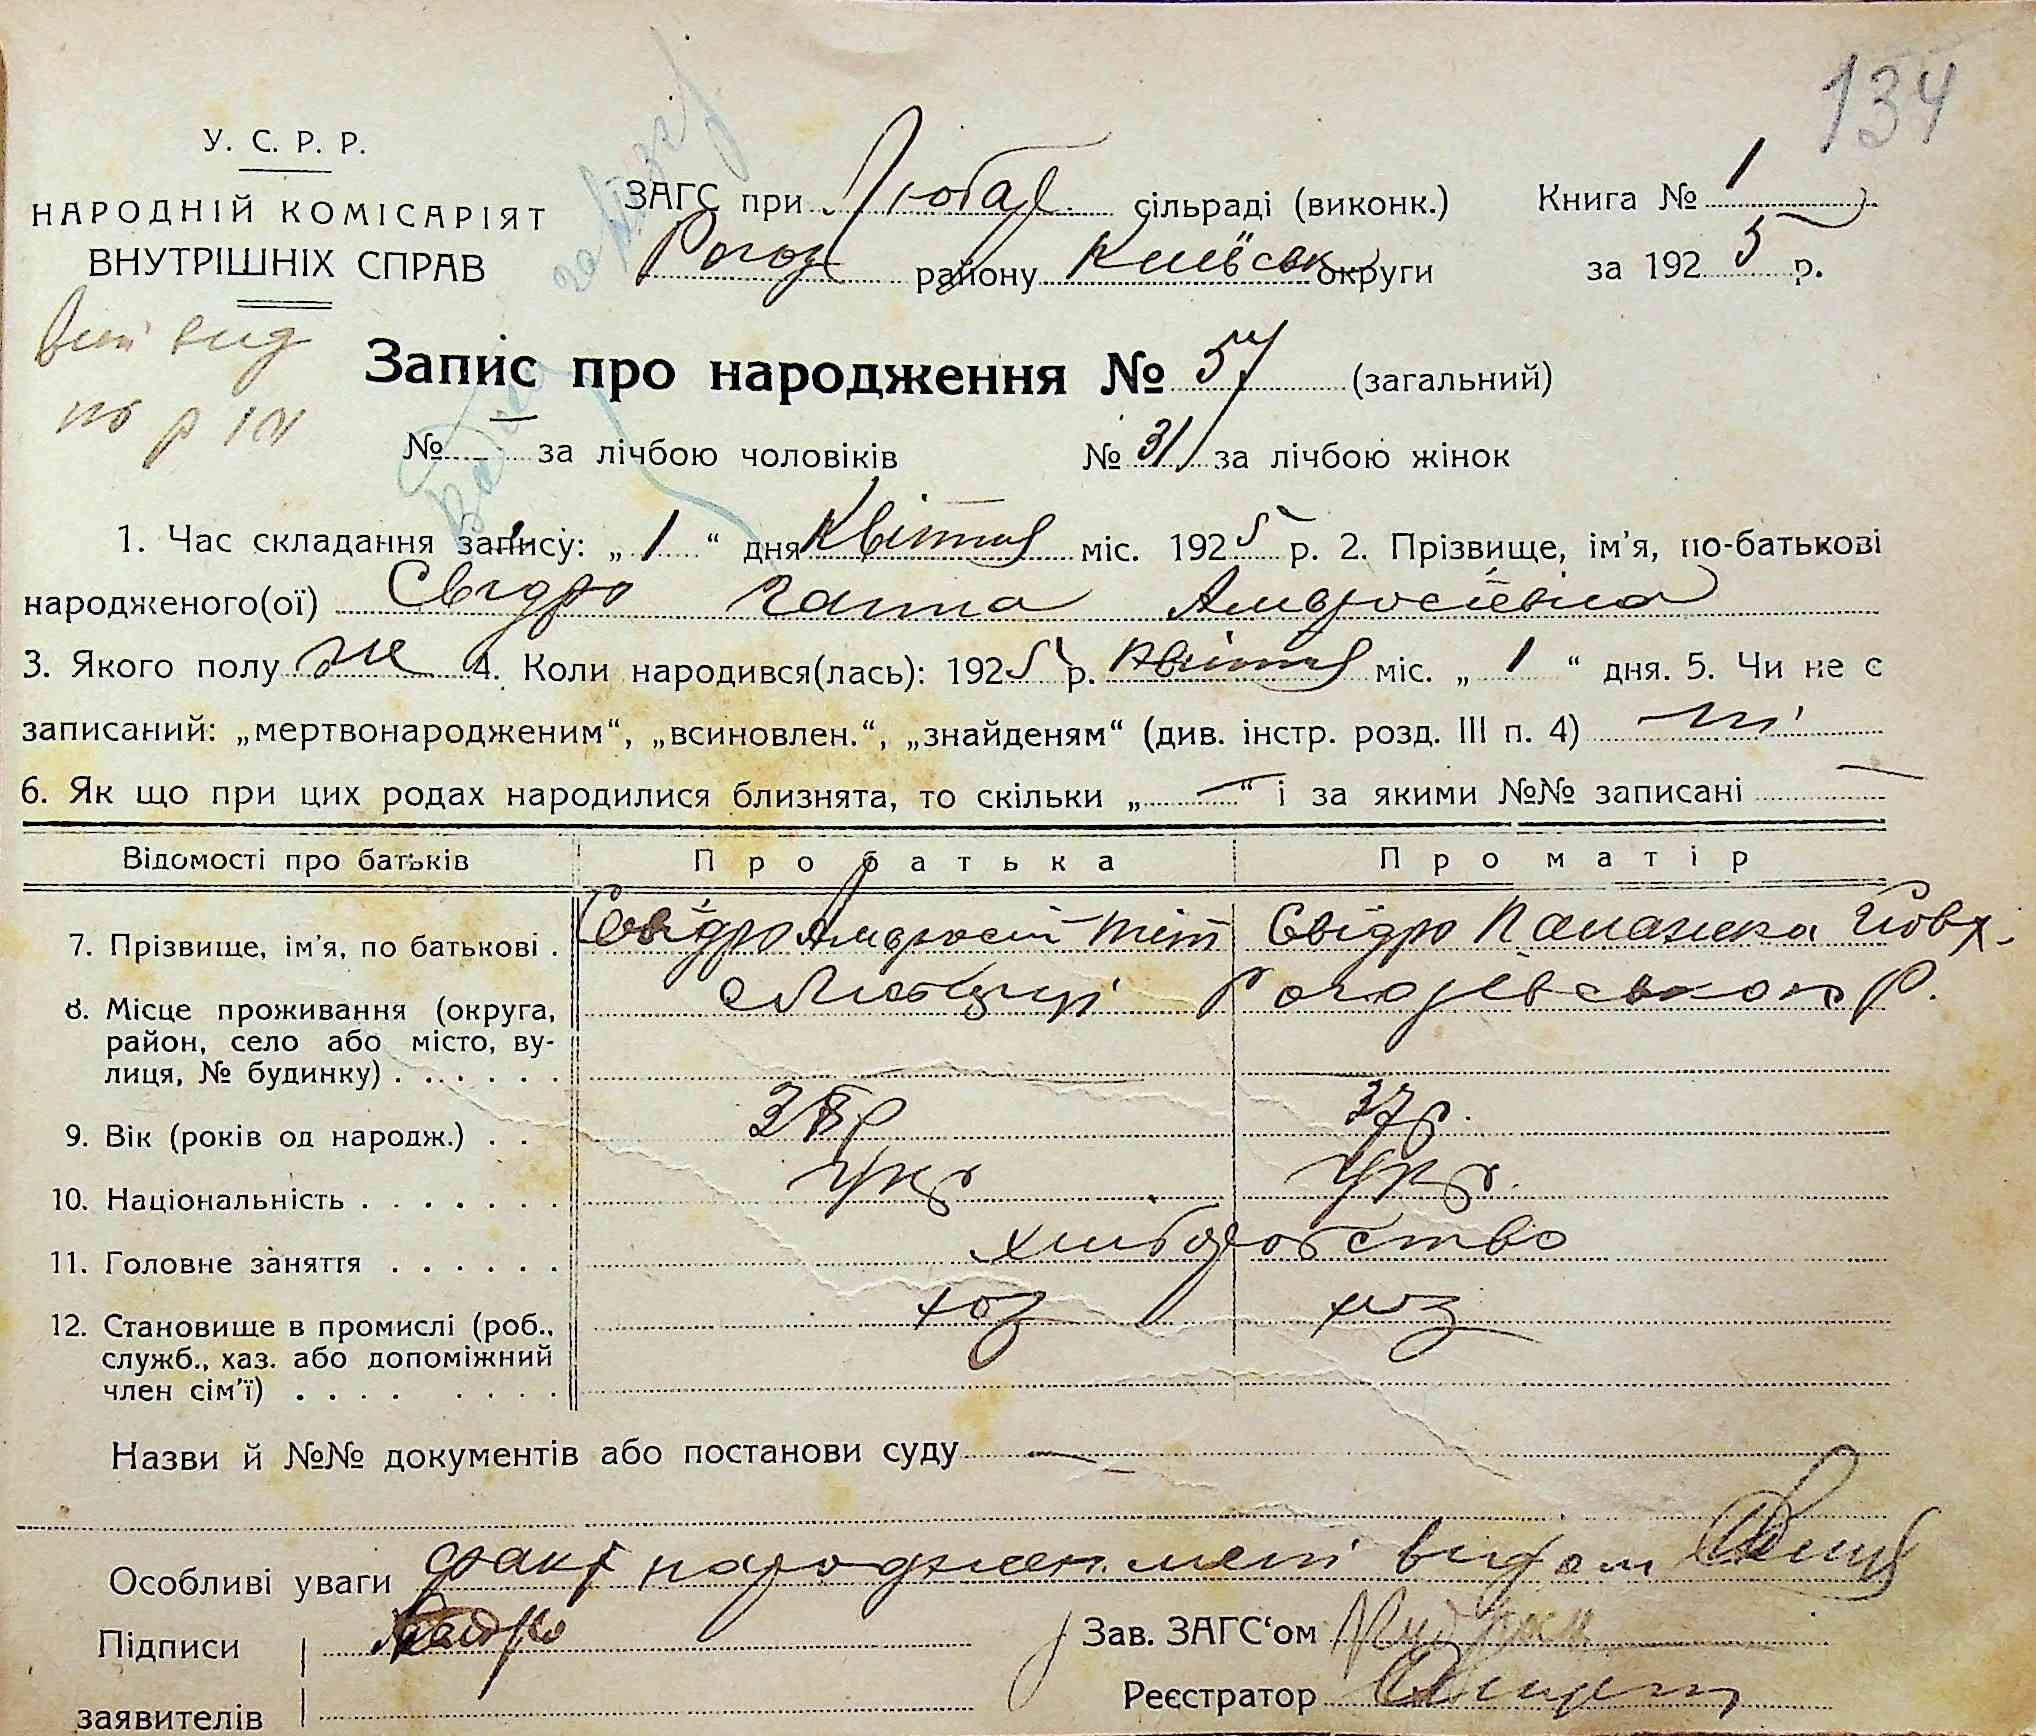 134
У. С. Р. Р.
НАРОДНІЙ КОМІСАРІЯТ
ВНУТРІШНІХ СПРАВ
ЗАГС при Любар. сільраді (виконк.) Книга № 1
Рогоз району Київськ округи за 1925 р.
Запис про народження № 57 (загальний)
по р
№ — за лічбою чоловіків № 31 за лічбою жінок
1. Час складання запису: „ 1 “ дня Квітня міс. 1925 р. 2. Прізвище, ім'я, по-батькові
народженого(ої) Свідро Ганна Амвросіевна
3. Якого полу ж 4. Коли народився(лась): 1925 р. Квітня міс. „ 1 “ дня. 5. Чи не є
записаний: „мертвонародженим“, „всиновлен.“, „знайденям“ (див. інстр. розд. III п. 4) ні
6. Як що при цих родах народилися близнята, то скільки „ — “ і за якими №№ записані —
Відомості про батьків Про батька Про матір
7. Прізвище, ім'я, по батькові . Свідро Амвросій Тит Свідро Паланжка Йовх.
8. Місце проживання (округа, Рогозівського Р.
район, село або місто, ву-
лиця, № будинку) . . . . . .
9. Вік (років од народж.) . . 38 р 37 р.
10. Національність . . . . . . . Укр Укр.
11. Головне заняття . . . . . . хліборобство
12. Становище в промислі (роб., хоз хоз
служб., хаз. або допоміжний
член сім'ї) . . . . . . . .
Назви й №№ документів або постанови суду —
Особливі уваги факт народжен. мені видом
Підписи Свідро Зав. ЗАГС‘ом
заявителів Реєстратор